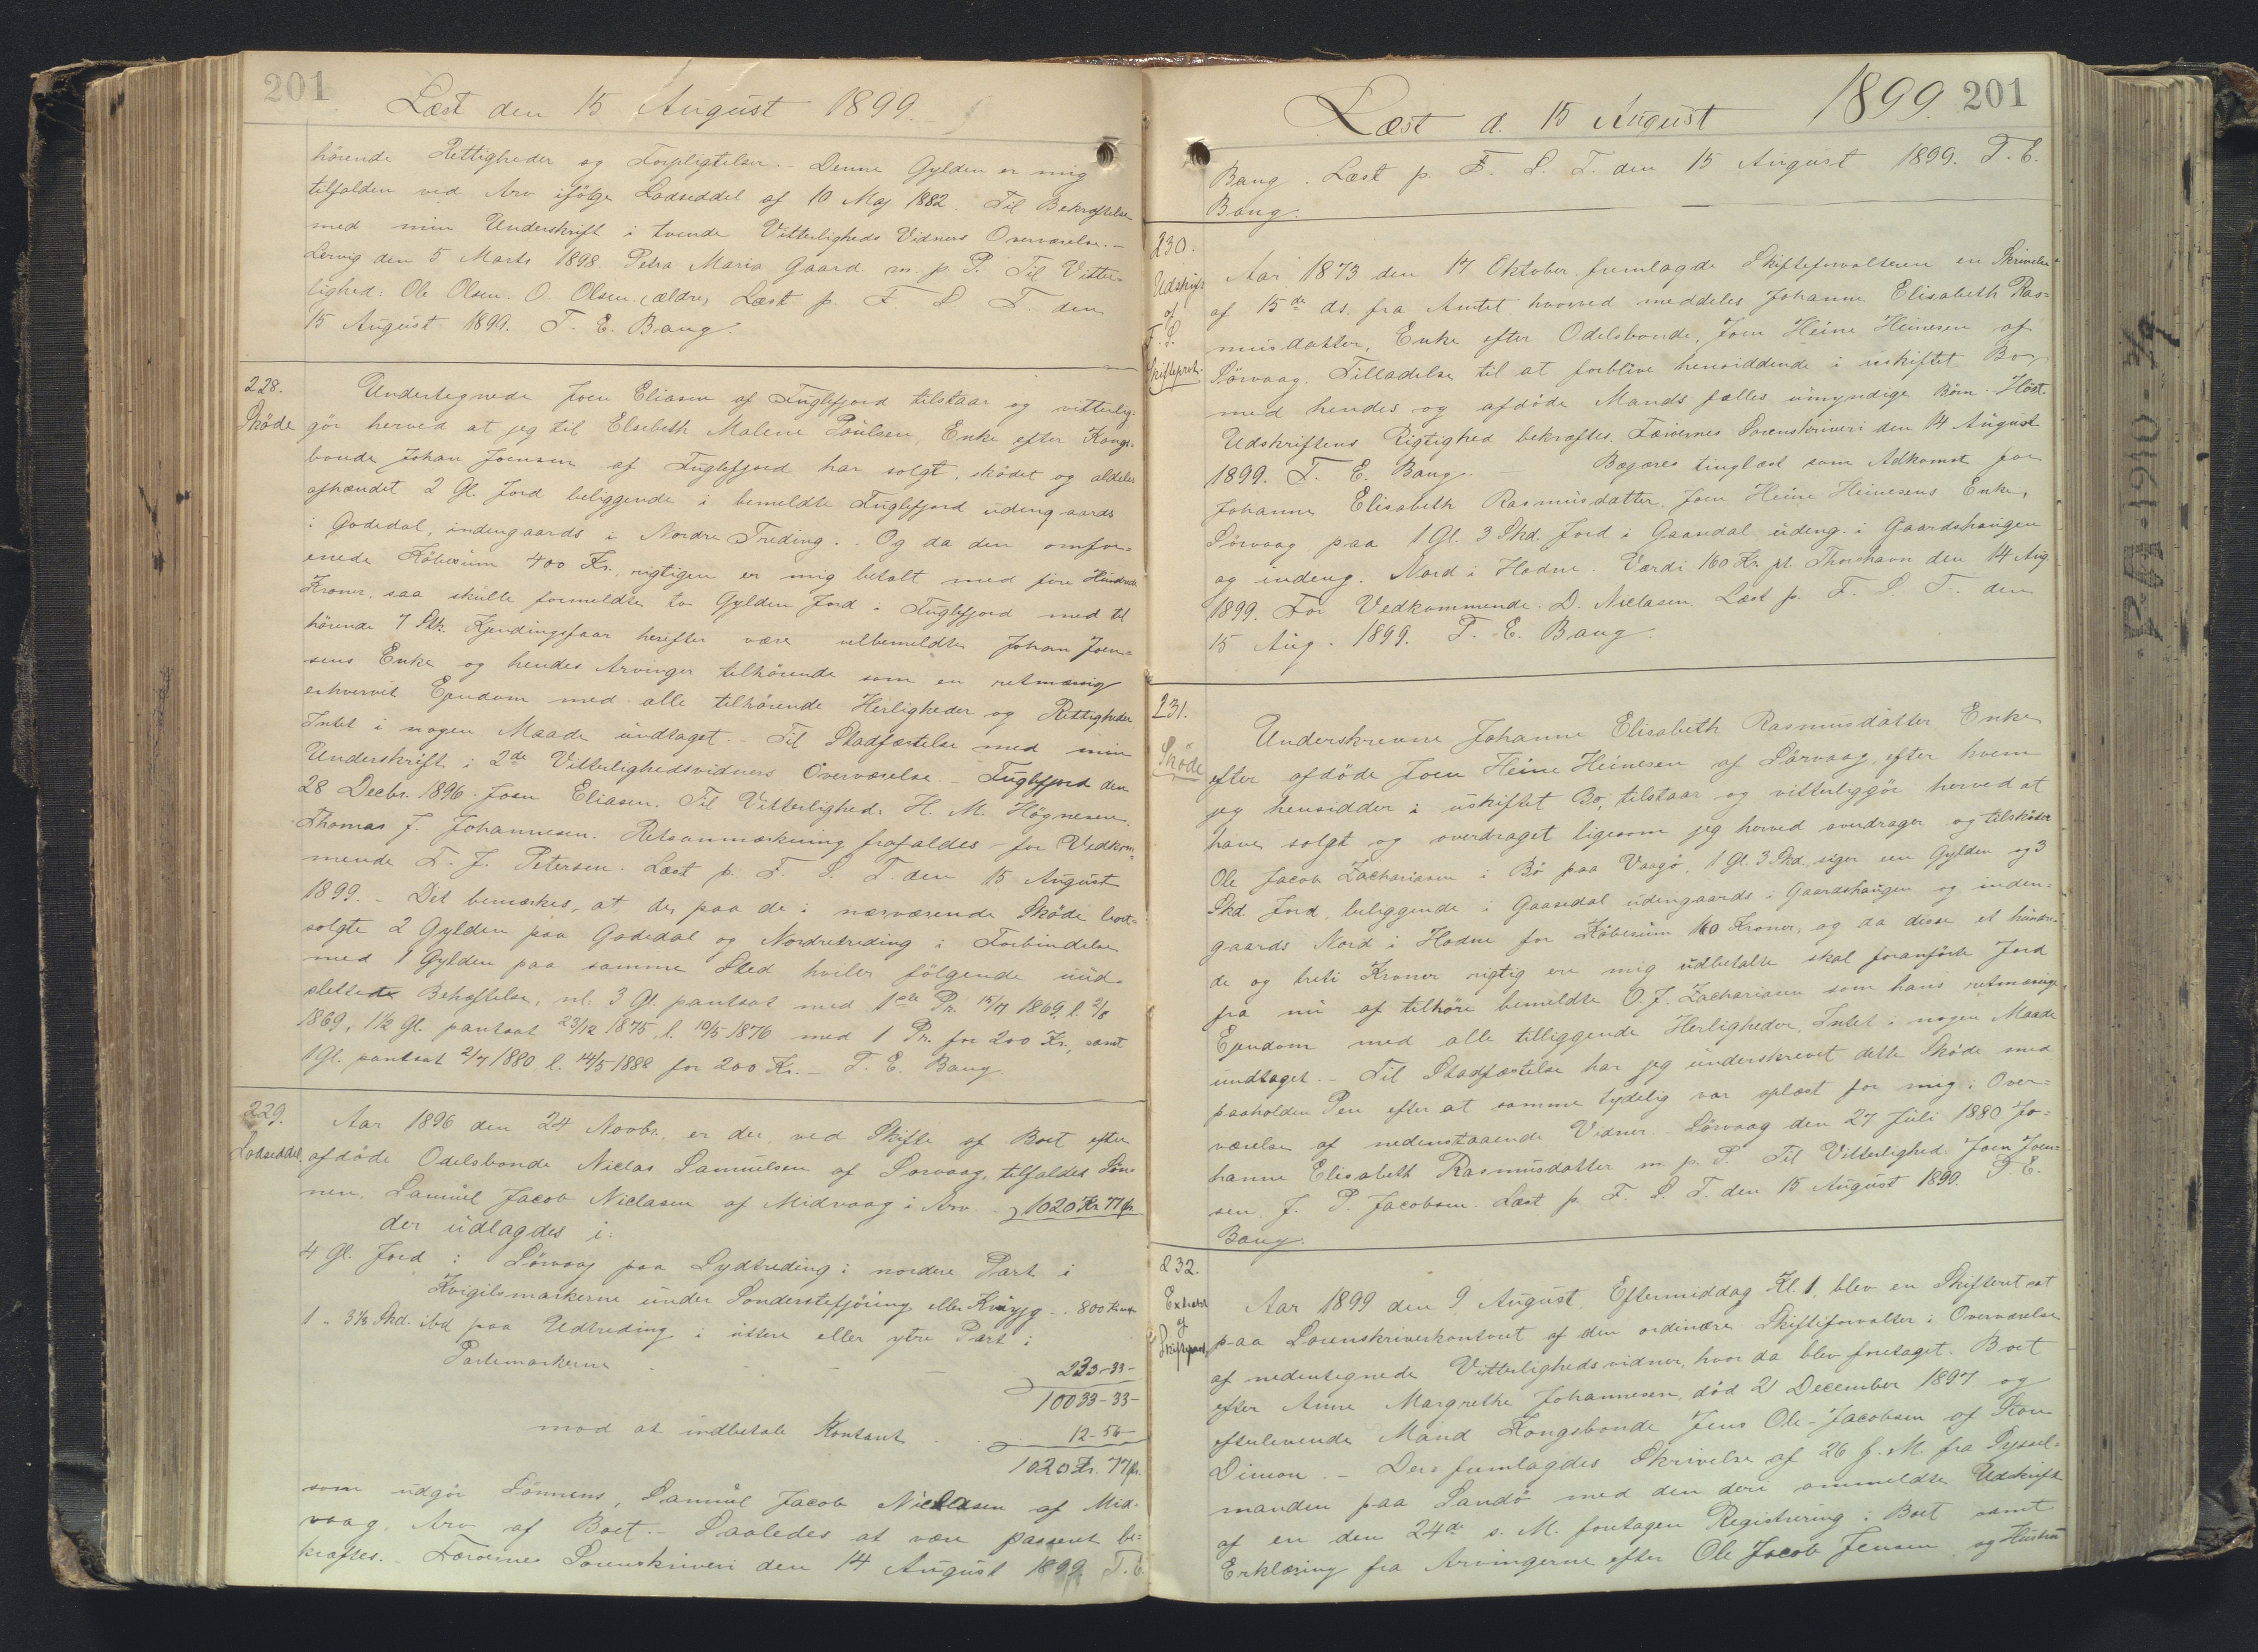 201
Læst den 15 August 1899.
hörende Rettigheder og Forpligtelser. - Denne Gylden er mig
tilfalden ved Arv ifölge Lodseddel af 10 Maj 1882. Til Bekræftelse
med min Underskrift i tvende Vitterligheds Vidners Overværelse. -
Lervig den 5 Marts 1898 Petra Maria Gaard m. p. P. Til Vitter-
lighed: Ole Olsen. O. Olsen (ældre) Læst p. F. S. T. den
15 August 1899. T. E. Bang.
228.
Sköde
Undertegnede Joen Eliasen af Fuglefjord tilstaar og vitterlig-
gör herved at jeg til Elsebeth Malene Poulsen, Enke efter Konge-
bonde Johan Joensen af Fuglefjord har solgt, sködet og aldeles
afhændet 2 Gl. Jord beliggende i bemeldte Fuglefjord udengaards
i Godedal, indengaards i Nordre Treding. Og da den omfor-
enede Köbesum 400 Kr. rigtigen er mig betalt med fire Hundrede
Kroner, saa skulle formeldte to Gylden Jord i Fuglefjord med til
hörende 7 Stk. Kjendingsfaar herefter være velbemeldte Johan Joen-
sens Enke og hendes Arvinger tilhörende som en retmæssig
erhvervet Ejendom med alle tilhörende Herligheder og Rettigheder
Intet i nogen Maade undtaget. - Til Stadfæstelse med min
Underskrift i 2de Vitterlighedsvidners Overværelse. - Fuglefjord den
28 Decbr. 1896. Joen Eliasen. Til Vitterlighed: H. M. Högnesen.
Thomas J. Johannesen. Retsanmærkning frafaldes for Vedkom-
mende T. J. Petersen. Læst p. F. S. T. den 15 August
1899. - Det bemærkes, at der paa de i nærværende Sköde bort-
solgte 2 Gylden paa Godedal og Nordretreding i Forbindelse
med 1 Gylden paa samme Sted hviler fölgende uud-
slettede Behæftelse, nl. 3 Gl. pantsat med 1ste Pr. 15/7 1869, l. 2/8
1869, 1½ Gl. pantsat 23/12 1875, l. 10/5 1876 med 1 Pr. for 200 Kr., samt
1 Gl. pantsat 2/7 1880, l. 14/5 1888 for 200 Kr. - T. E. Bang
229.
Lodseddel.
Aar 1896 den 24 Novbr. er der, ved Skifte af Boet efter
afdöde Odelsbonde Niclas Samuelsen af Sorvaag, tilfaldet Sön-
nen, Samuel Jacob Niclasen af Midvaag i Arv - 1020 Kr 77 ør
der udlagdes i:
4 Gl. Jord i Sörvaag paa Sydtreding i nordere Part i
Kvigilsmarkerne under 800 Kroner
1 - 3⅓ Skd. ibd paa Udtreding i uttere eller ytre Part i
Partemarkerne - - - 233-33-
10033-33-
mod at indbetale Kontant . . 12-56
1020 Kr. 77 ør.
som udgör Sönnens, Samuel Jacob Niclasen af Mid-
vaag, Arv af Boet. - Saaledes at være passeret be-
kræftes. - Færoernes Sorenskriveri den 14 August 1899 T. E.
1899. 201
Læst d. 15 August
Bang. Læst p. F. S. T. den 15 August 1899. T. E.
Bang.
230.
Udskrift
af
F. S.
Skifteprot.
Aar 1873 den 17 Oktober fremlagde Skifteforvalteren en Skrivelse
af 15de ds. fra Amtet hvorved meddeles Johanne Elisabeth Ras-
musdatter, Enke efter Odelsbonde, Joen Heine Heinesen af
Sörvaag, Tilladelse til at forblive hensiddende i uskiftet Bo
med hendes og afdöde Mands fælles umyndige Börn. Höst.
Udskriftens Rigtighed bekræftes. Færöernes Sorenskriveri den 14 August
1899. T. E. Bang. - Begæres tinglæst som Adkomst for
Johanne Elisabeth Rasmusdatter, Joen Heine Heinesens Enke,
Sörvaag paa 1 Gl. 3 Skd. Jord i Gaasedal udeng. i Gaardshaugen
og indeng. Nord i Hodne. Værdi 160 Kr. pt. Thorshavn den 14 Aug.
1899. For Vedkommende D. Niclasen. Læst p. F. S. T. den
15 Aug. 1899. T. E. Bang
231.
Sköde
Underskrevne Johanne Elisabeth Rasmusdatter Enke
efter afdöde Joen Heine Heinesen af Sörvaag, efter hvem
jeg hensidder i uskiftet Bo, tilstaar og vitterliggör herved at
have solgt og overdraget ligesom jeg herved overdrager og tilsköder
Ole Jacob Zachariasen i Bö paa Vaagö, 1 Gl. 3 Skd., siger een Gylden og 3
Skd. Jord, beliggende i Gaasedal udengaards i Gaardshaugen og inden-
gaards Nord i Hodne for Köbesum 160 Kroner, og da disse et hundre-
de og treti Kroner rigtig ere mig udbetalte skal foranförte Jord
fra nu af tilhöre bemeldte O. J. Zachariasen som hans retmæssige
Ejendom med alle tilliggende Herligheder, Intet i nogen Maade
undtaget. - Til Stadfæstelse har jeg underskrevet dette Sköde med
paaholden Pen efter at samme tydelig var oplæst for mig i Over-
værelse af nedenstaaende Vidner. Sörvaag den 27 Juli 1880 Jo-
hanne Elisabeth Rasmusdatter m. p. P. Til Vitterlighed: Joen Joen-
sen. J. P. Jacobsen. Læst p. F. S. T. den 15 August 1899. T. E.
Bang.
232.
Extrakt
af
Skifteprot.
Aar 1899 den 9 August Eftermiddag Kl. 1, blev en Skifteret sat
paa Sorenskriverkontoret af den ordinære Skifteforvalter i Overværelse
af nedentegnede Vitterligheds vidner, hvor da blev foretaget. Boet
efter Anne Margrethe Johannesen, död 21 December 1897 og
efterlevende Mand Kongsbonde Jens Ole-Jacobsen af Store
Dimon. - Der fremlagdes Skrivelse af 26 f. M. fra Syssel-
manden paa Sandö med den deri ommeldte Udskrift
af en den 24de s. M. foretagen Registrering i Boet samt
Erklæring fra Arvingerne efter Ole Jacob Jensen og Hustru